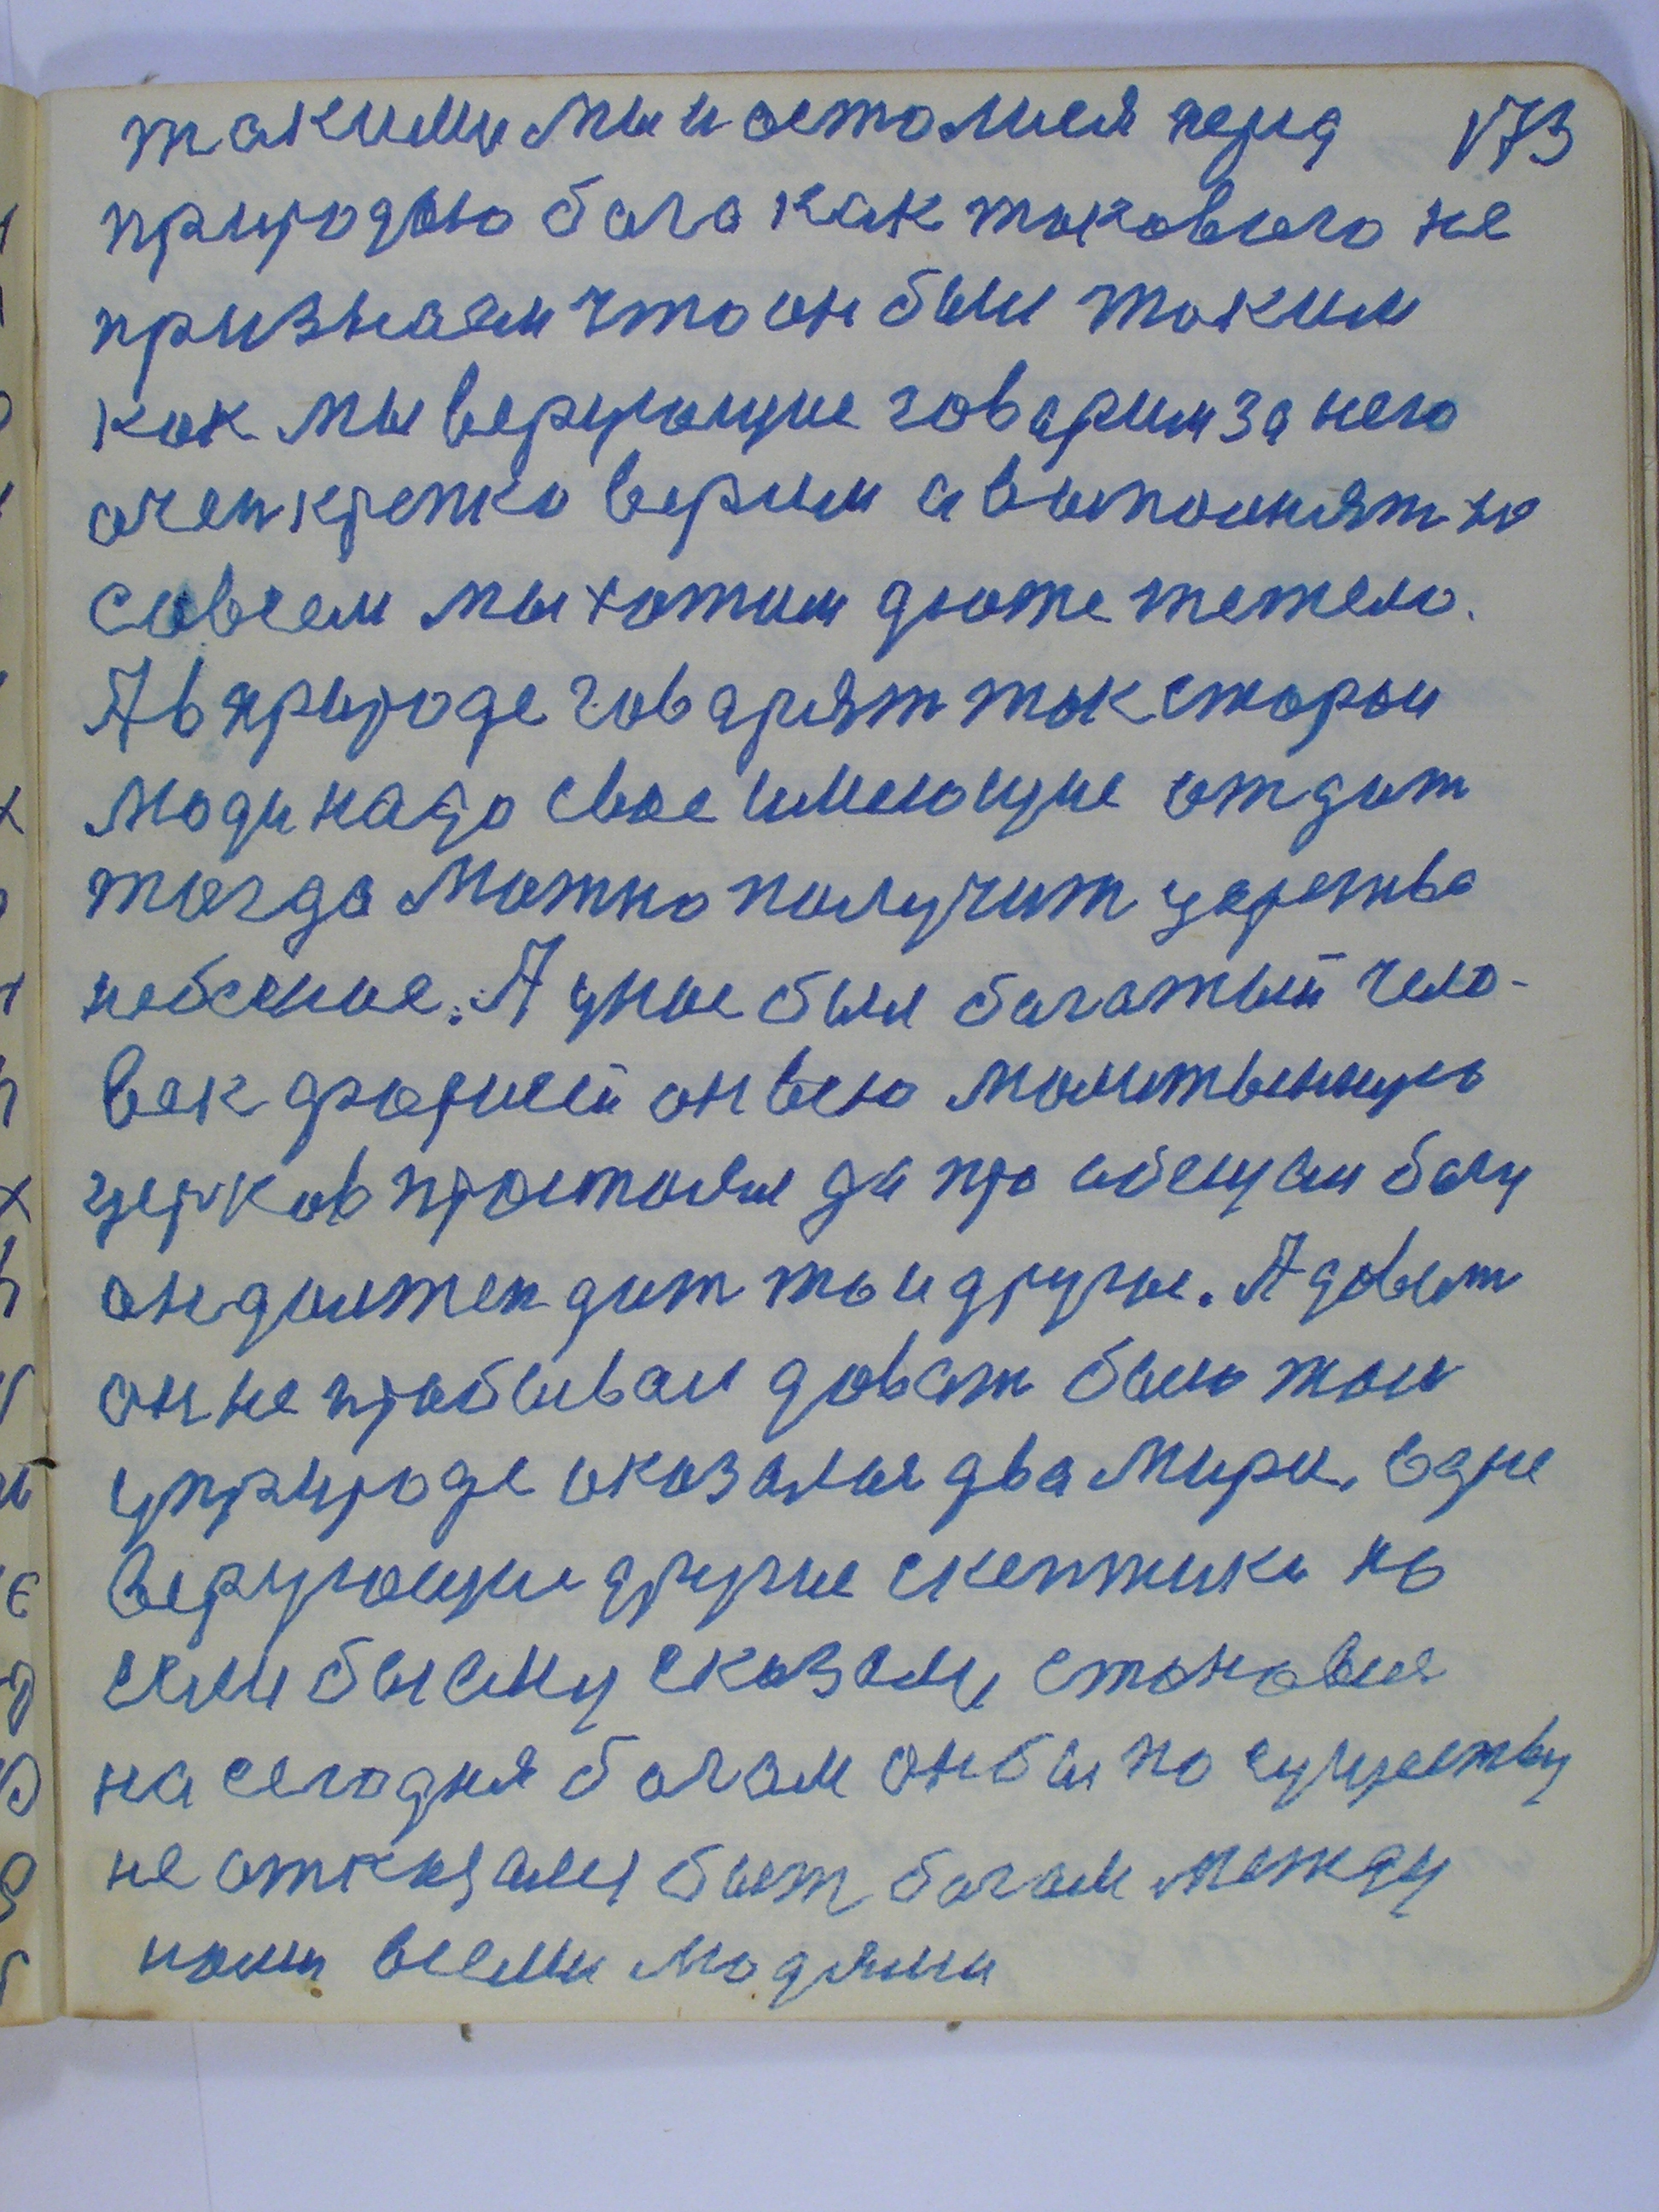 такими мы и осталися перид 173
природою бога как токового не
признаем что он был таким
как мы верующие говарим за него
очен крепко верим а выполнят ю
совсем мы хотим дюже тежело.
А в природе говарят так старои
люди надо свое имеющие отдат
тогда можно получит царства
небесное. А у нас был багатый чело-
век фарисей он всю молитвенную
церков простоял да про обещал богу
он должен дат то и другое. А дават
он не пробывал дават было жол
у природе оказалис два мира, одне
верующии другие скептики но
если бы ему сказали становис
на сегодня богам он бы по существу
не отказался быт богам между
нами всеми людями